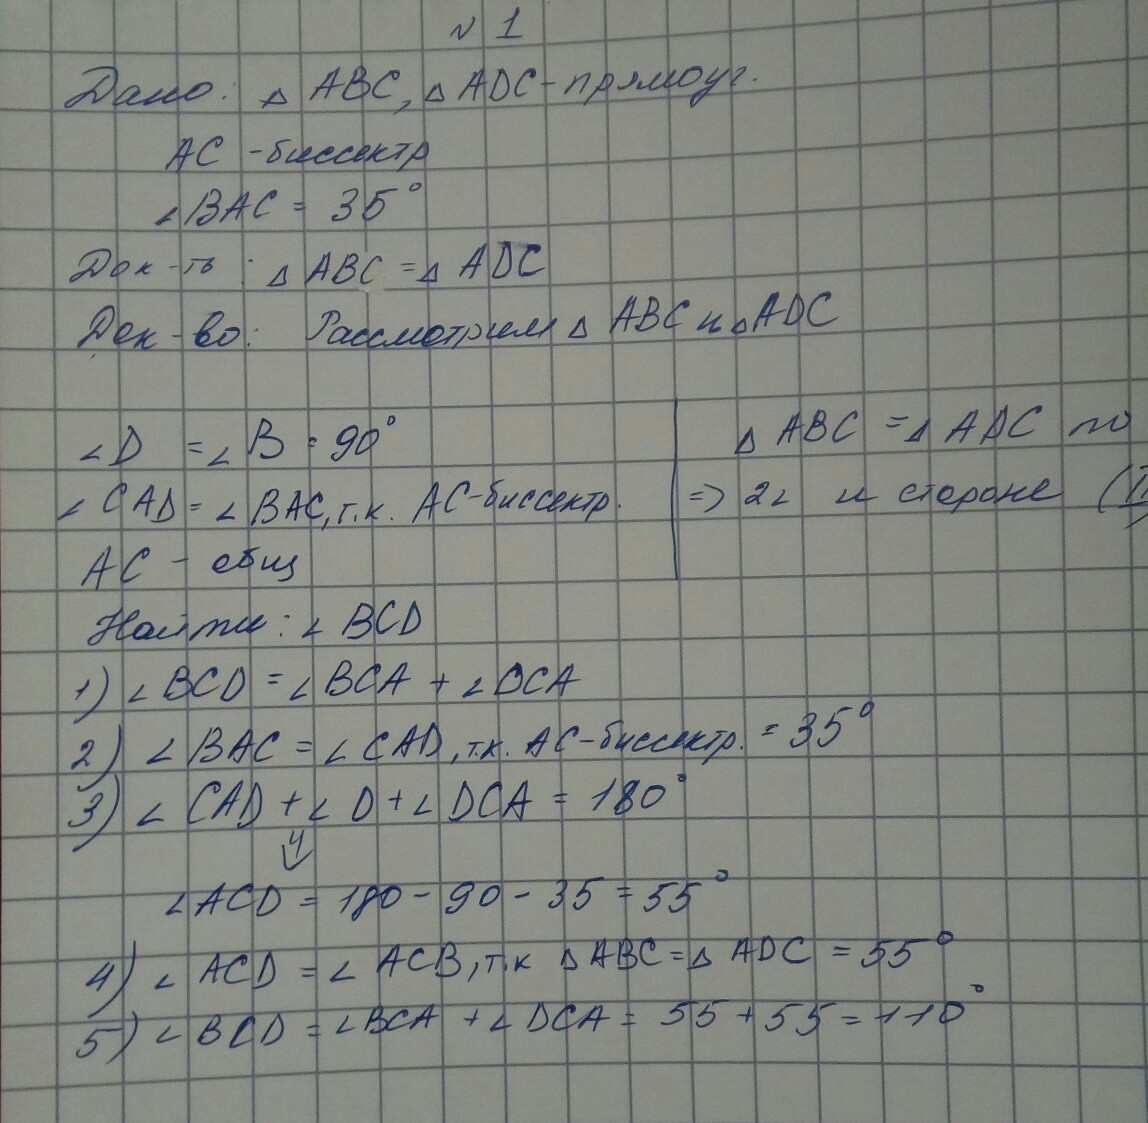 № 1
Дано: △ ABC, △ ADC - прямоуг.
AC - биссектр
∠BAC = 35°
Док-ть: △ ABC = △ ADC
Док-во: Рассмотрим △ ABC и △ADC
∠D = ∠B = 90°
∠CAD = ∠BAC, т.к. AC-биссектр.
AC - общ
△ ABC = △ ADC по
=> 2∠ и стороне (I
Найти: ∠ BCD
1) ∠ BCD = ∠ BCA + ∠DCA
2) ∠ BAC = ∠ CAD, т.к. AC-биссектр. = 35°
3) ∠ CAD + ∠ D + ∠ DCA = 180°
⇓
∠ACD = 180 - 90 - 35 = 55°
4) ∠ ACD = ∠ ACB, т.к △ABC = △ ADC = 55°
5) ∠ BCD = ∠BCA + ∠DCA = 55 + 55 = 110°